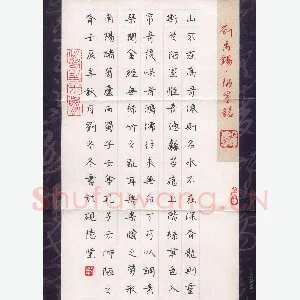 劉禹錫·陋室銘
山不在高有仙則名水不在深有龍則靈
斯是陋室惟吾德馨苔痕上階綠草色入
簾青談笑有鴻儒往來無白丁可以調素
琴閱金經無絲竹之亂耳無案牘之勞形
南陽諸葛廬西蜀子雲亭孔子云何陋之
有壬辰年秋月劉冬冬書於硯德堂
Shufawang.CN